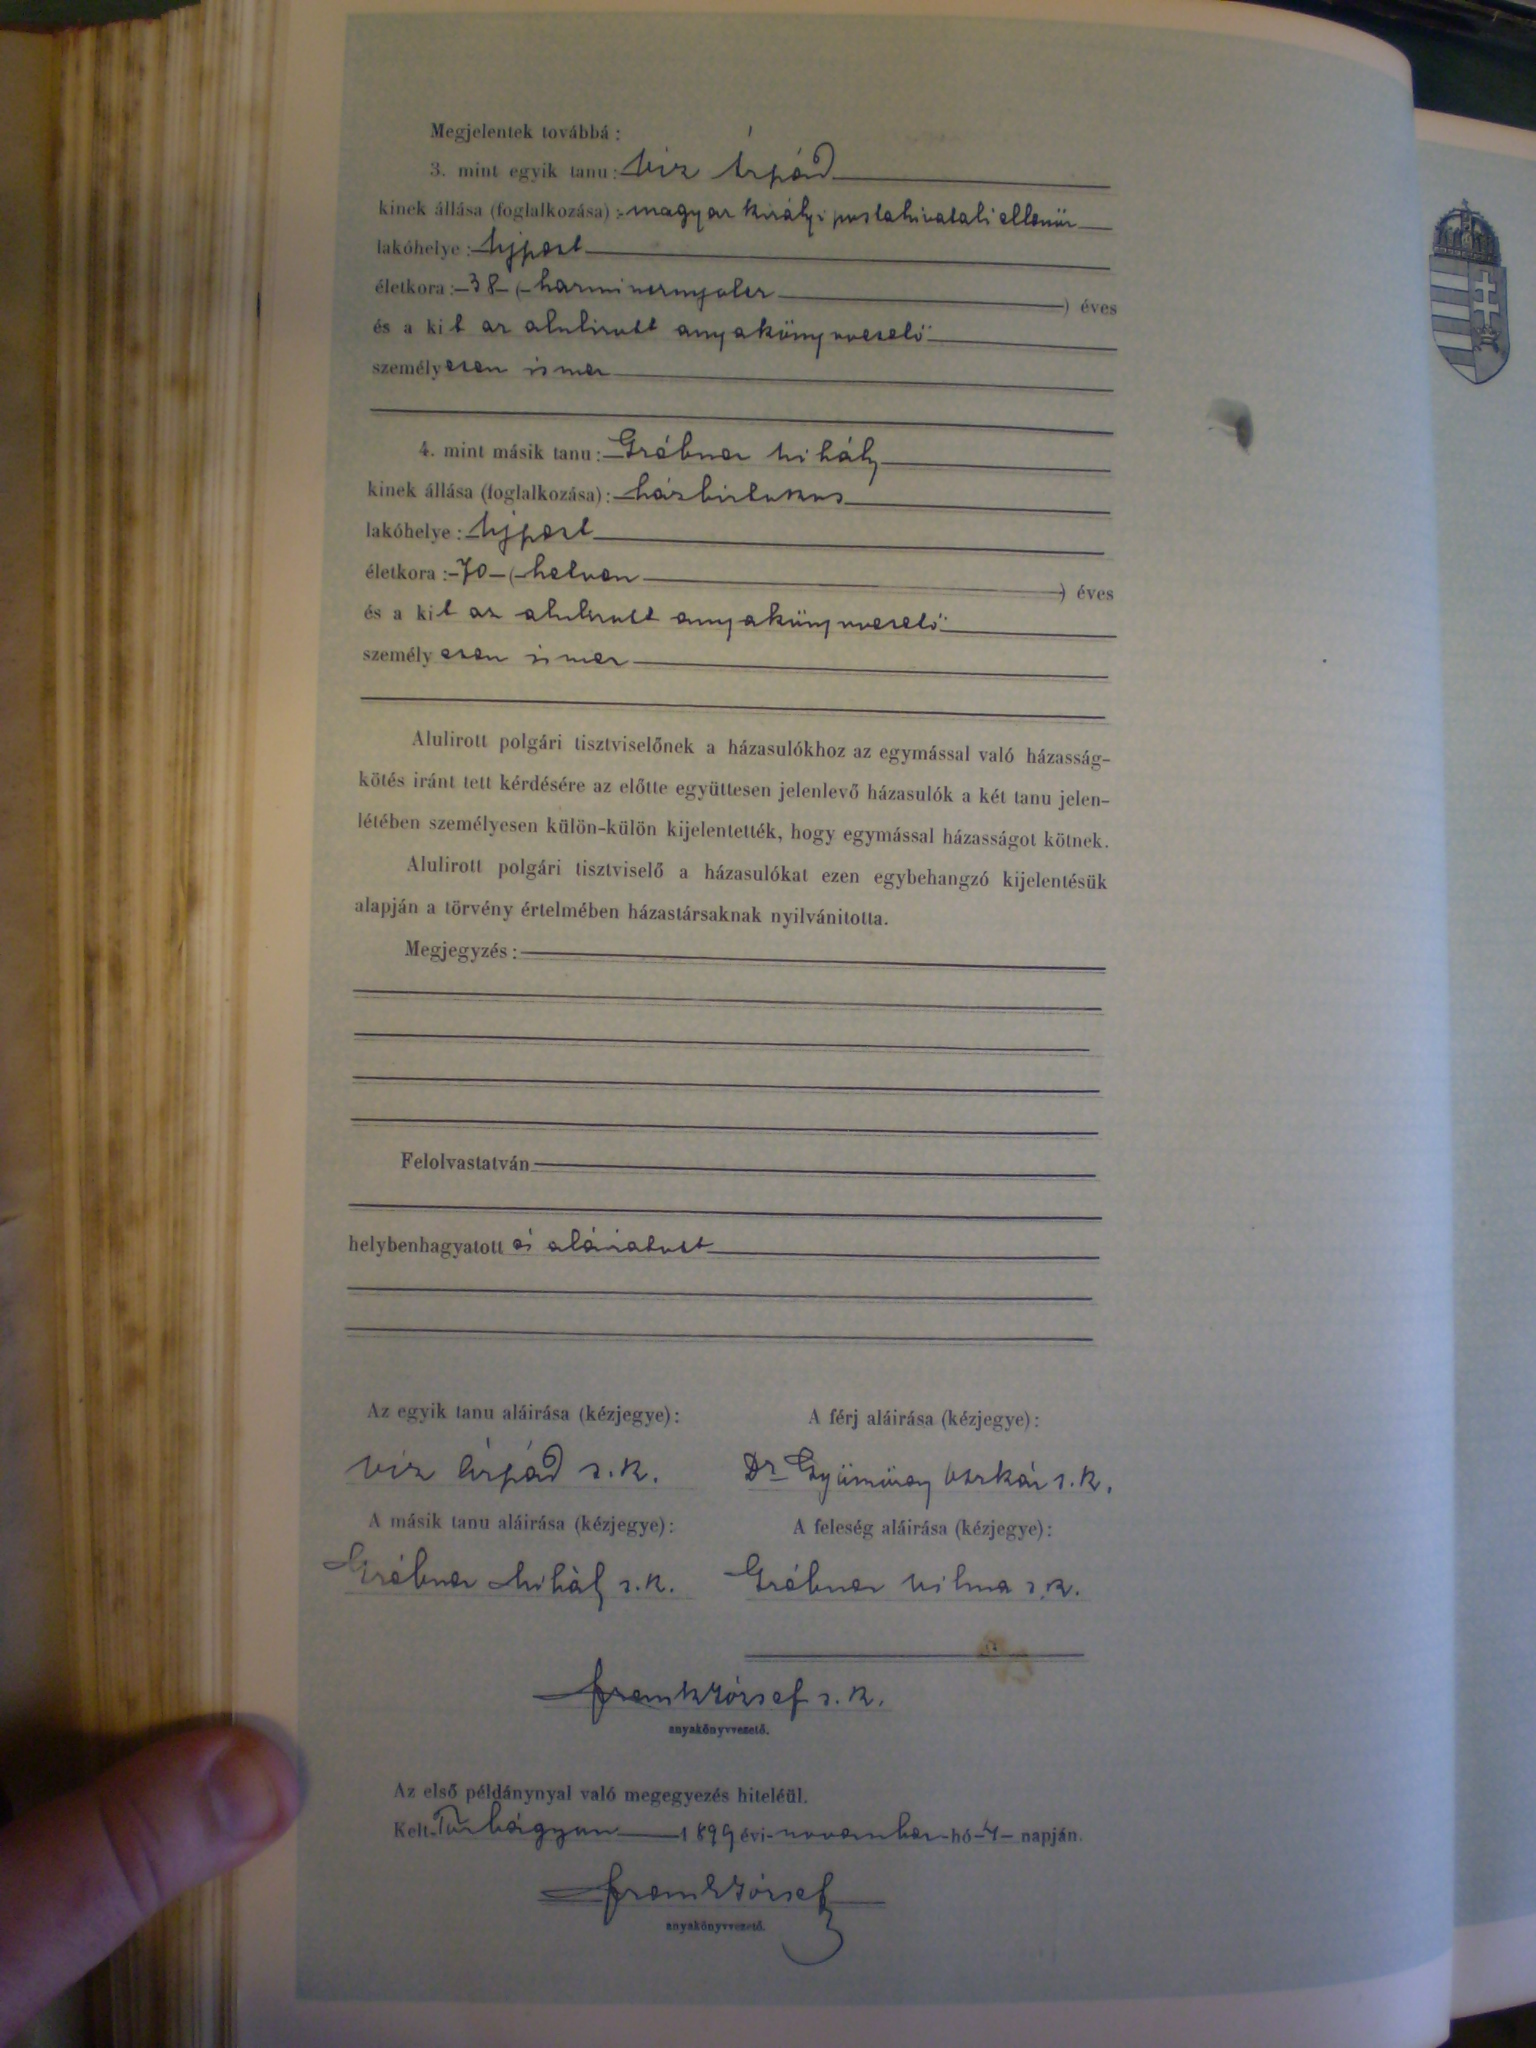 Megjelentek továbbá :
3. mint egyik tanu : Viz Árpád
kinek állása (foglalkozása) : magyar királyi postahivatali ellenőr
lakóhelye : Ujpest
életkora : 38 ( harmincnyolcz ) éves
és a kit az alulirott anyakönyvvezető
személyesen ismer
4. mint másik tanu : Grébner Mihály
kinek állása (foglalkozása) : házbirtokos
lakóhelye : Ujpest
életkora : 70 ( hetven ) éves
és a kit az alulirott anyakönyvvezető
személyesen ismer
Alulirott polgári tisztviselőnek a házasulókhoz az egymással való házasság-
kötés iránt tett kérdésére az előtte együttesen jelenlevő házasulók a két tanu jelen-
létében személyesen külön-külön kijelentették, hogy egymással házasságot kötnek.
Alulirott polgári tisztviselő a házasulókat ezen egybehangzó kijelentésük
alapján a törvény értelmében házastársaknak nyilvánitotta.
Megjegyzés :
Felolvastatván
helybenhagyatott és aláiratott
Az egyik tanu aláirása (kézjegye) : A férj aláirása (kézjegye) :
Viz Árpád s. k. Dr Gyümörey Oszkár s. k.
A másik tanu aláirása (kézjegye) : A feleség aláirása (kézjegye) :
Grébner Mihály s. k. Grébner Vilma s. k.
Frank József s. k.
anyakönyvvezető.
Az első példánynyal való megegyezés hiteléül.
Kelt Turbágyon 1899 évi november hó 4 napján.
Frank József
anyakönyvvezető.